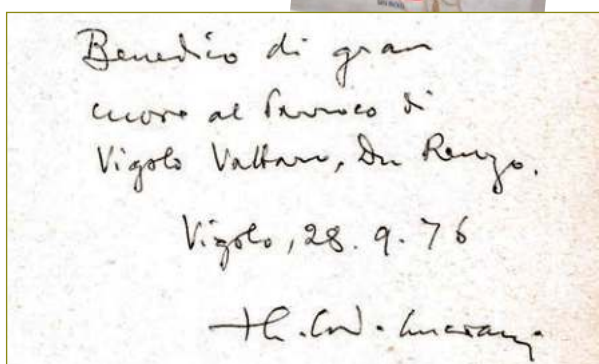 Benedico di gran
cuore al Parroco di
Vigolo Vattaro, Don Renzo.
Vigolo, 28.9.76
+ A. Card. Luciani